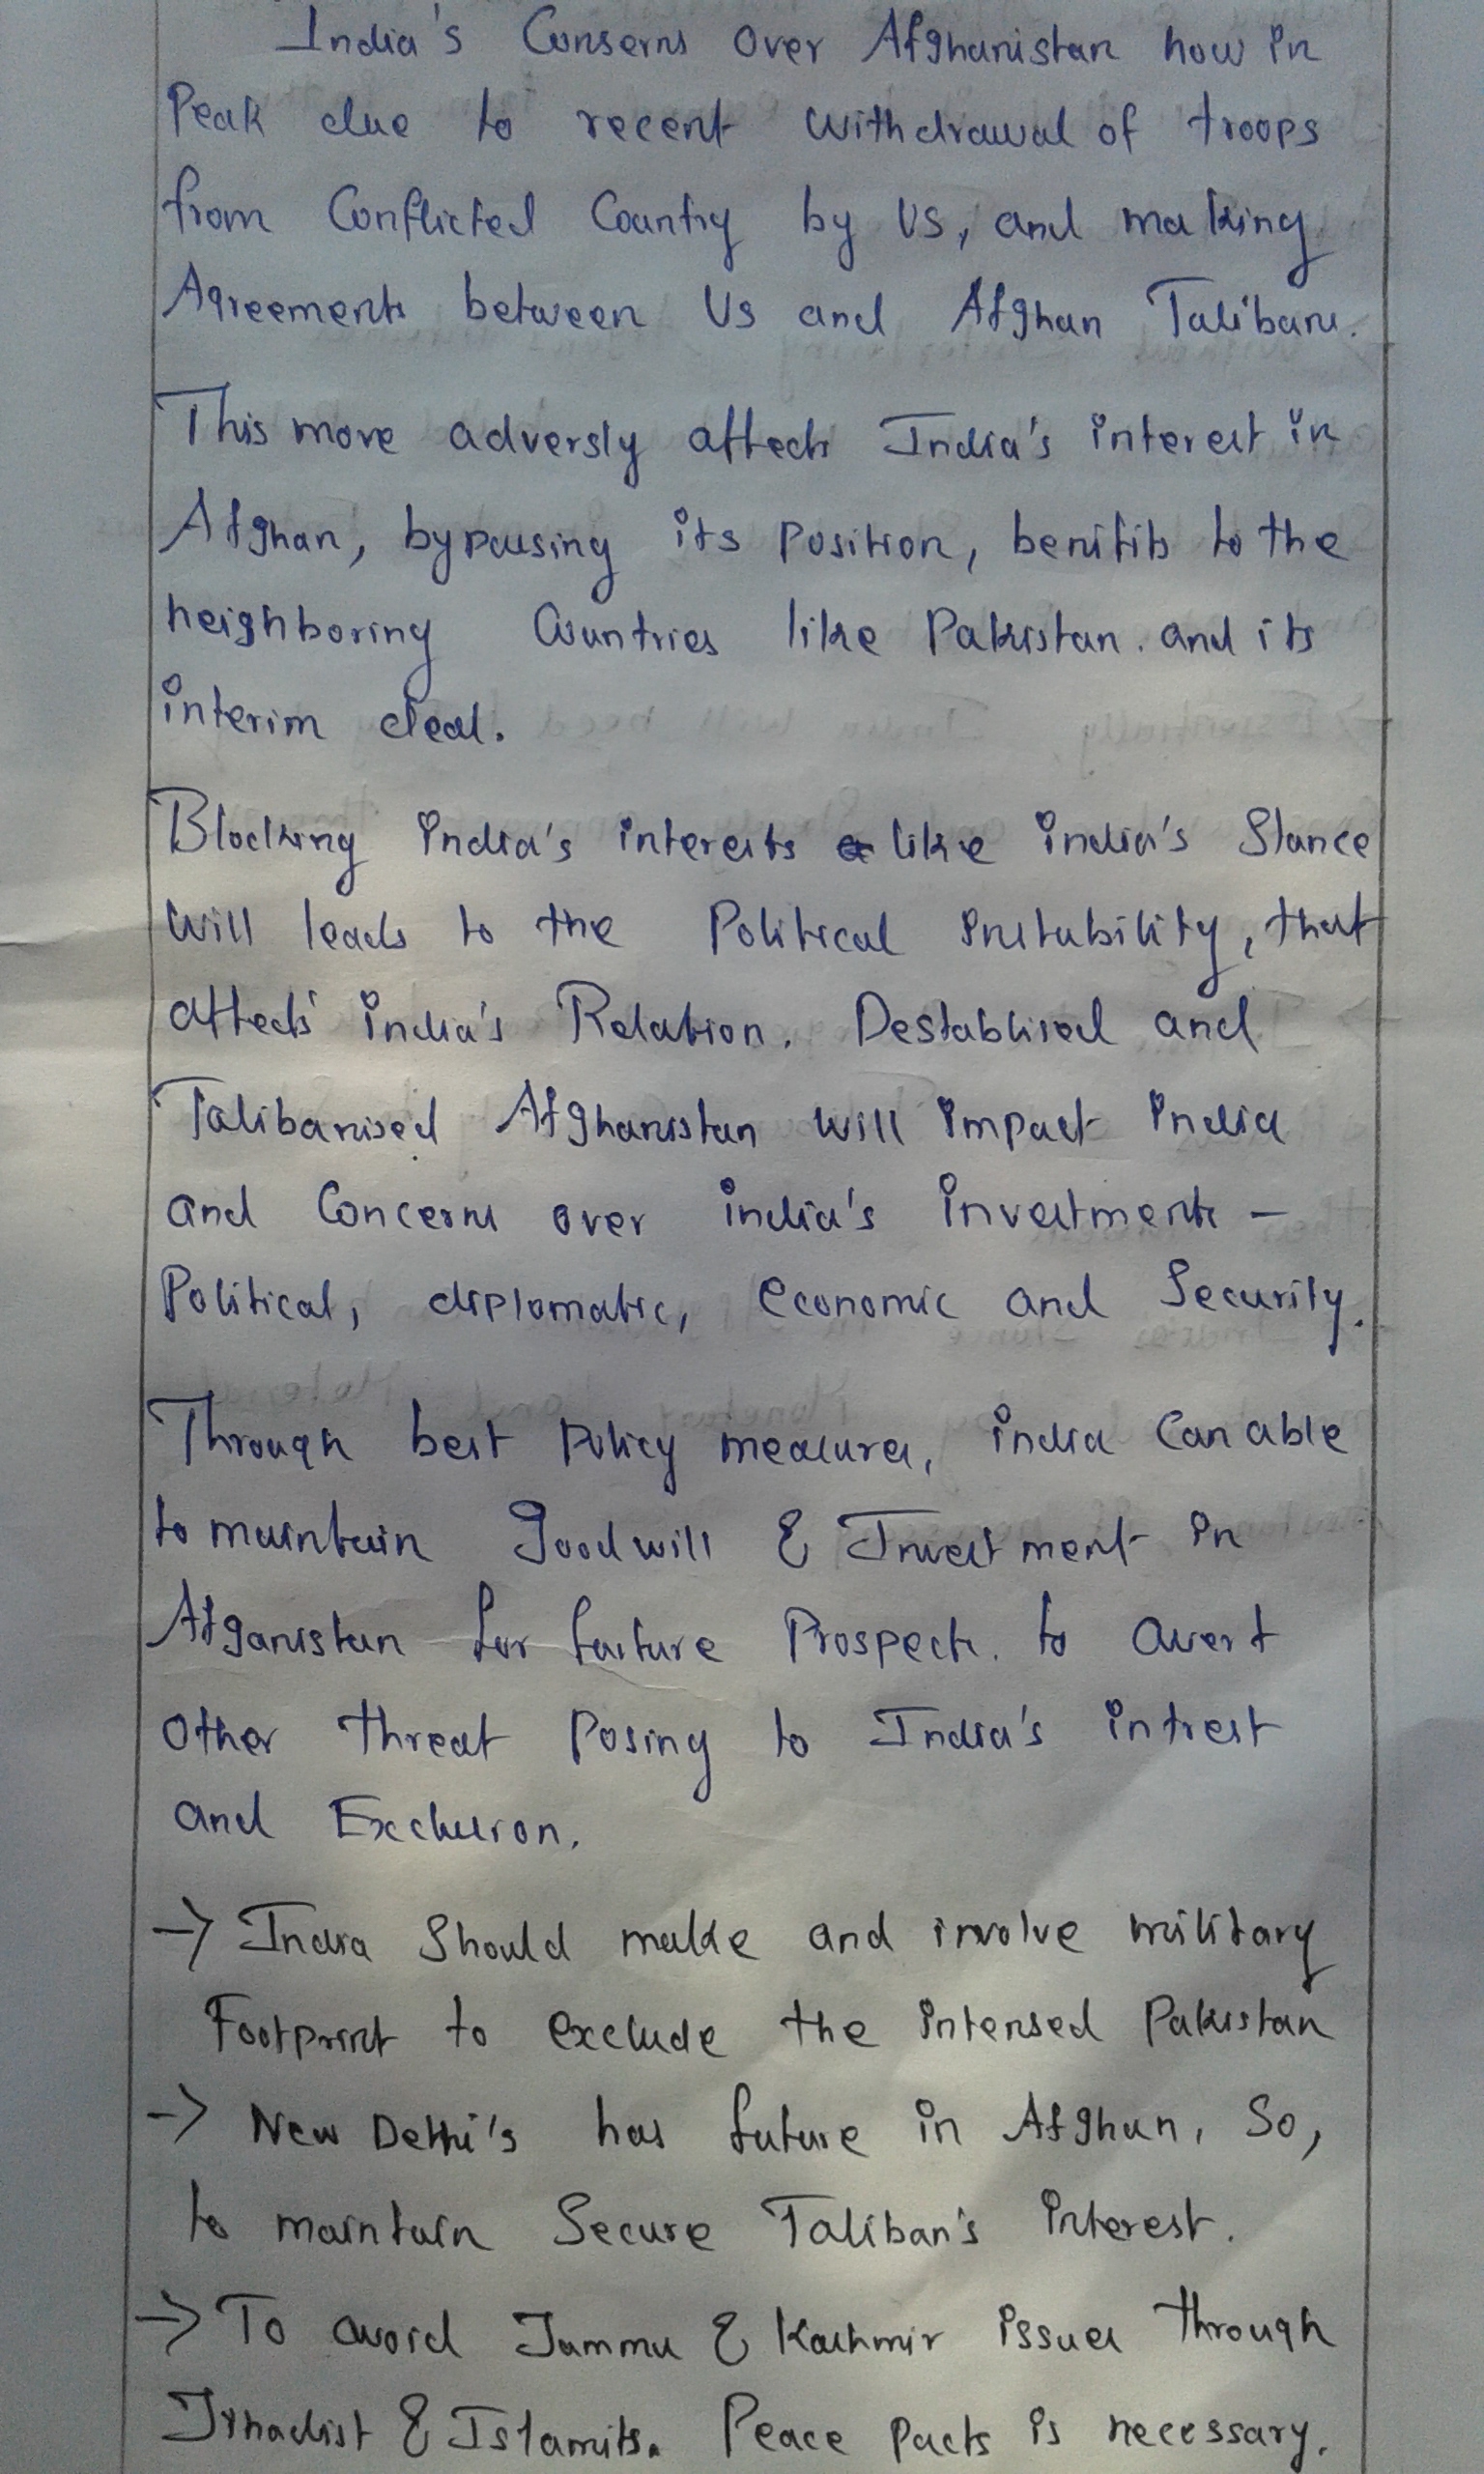 India's Conserns over Afghanistan now in
Peak due to recent withdrawal of troops
from Conflicted Country by US, and making
Agreements between Us and Afghan Taliban.
This move adversly affects India's interest in
Afghan, bypassing its position, benifits to the
neighboring Countries like Pakistan. and its
interim deal.
Blocking india's interests like india's Stance
will leads to the Political instability, that
affects india's Relation. Destablised and
Talibanised Afghanistan will impact india
and Concerns over india's investments –
Political, diplomatic, economic and Security.
Through best Policy measures, india Can able
to maintain Goodwill & Investment in
Afganistan for future Prospects. to avert
other threat Posing to India's intrest
and Exclusion.
→ India Should make and involve military
Footprint to exclude the intensed Pakistan
→ New Delhi's has future in Afghan, So,
to maintain Secure Taliban's interest.
→ To avoid Jammu & Kashmir issues through
Jihadist & Islamits. Peace pacts is necessary.